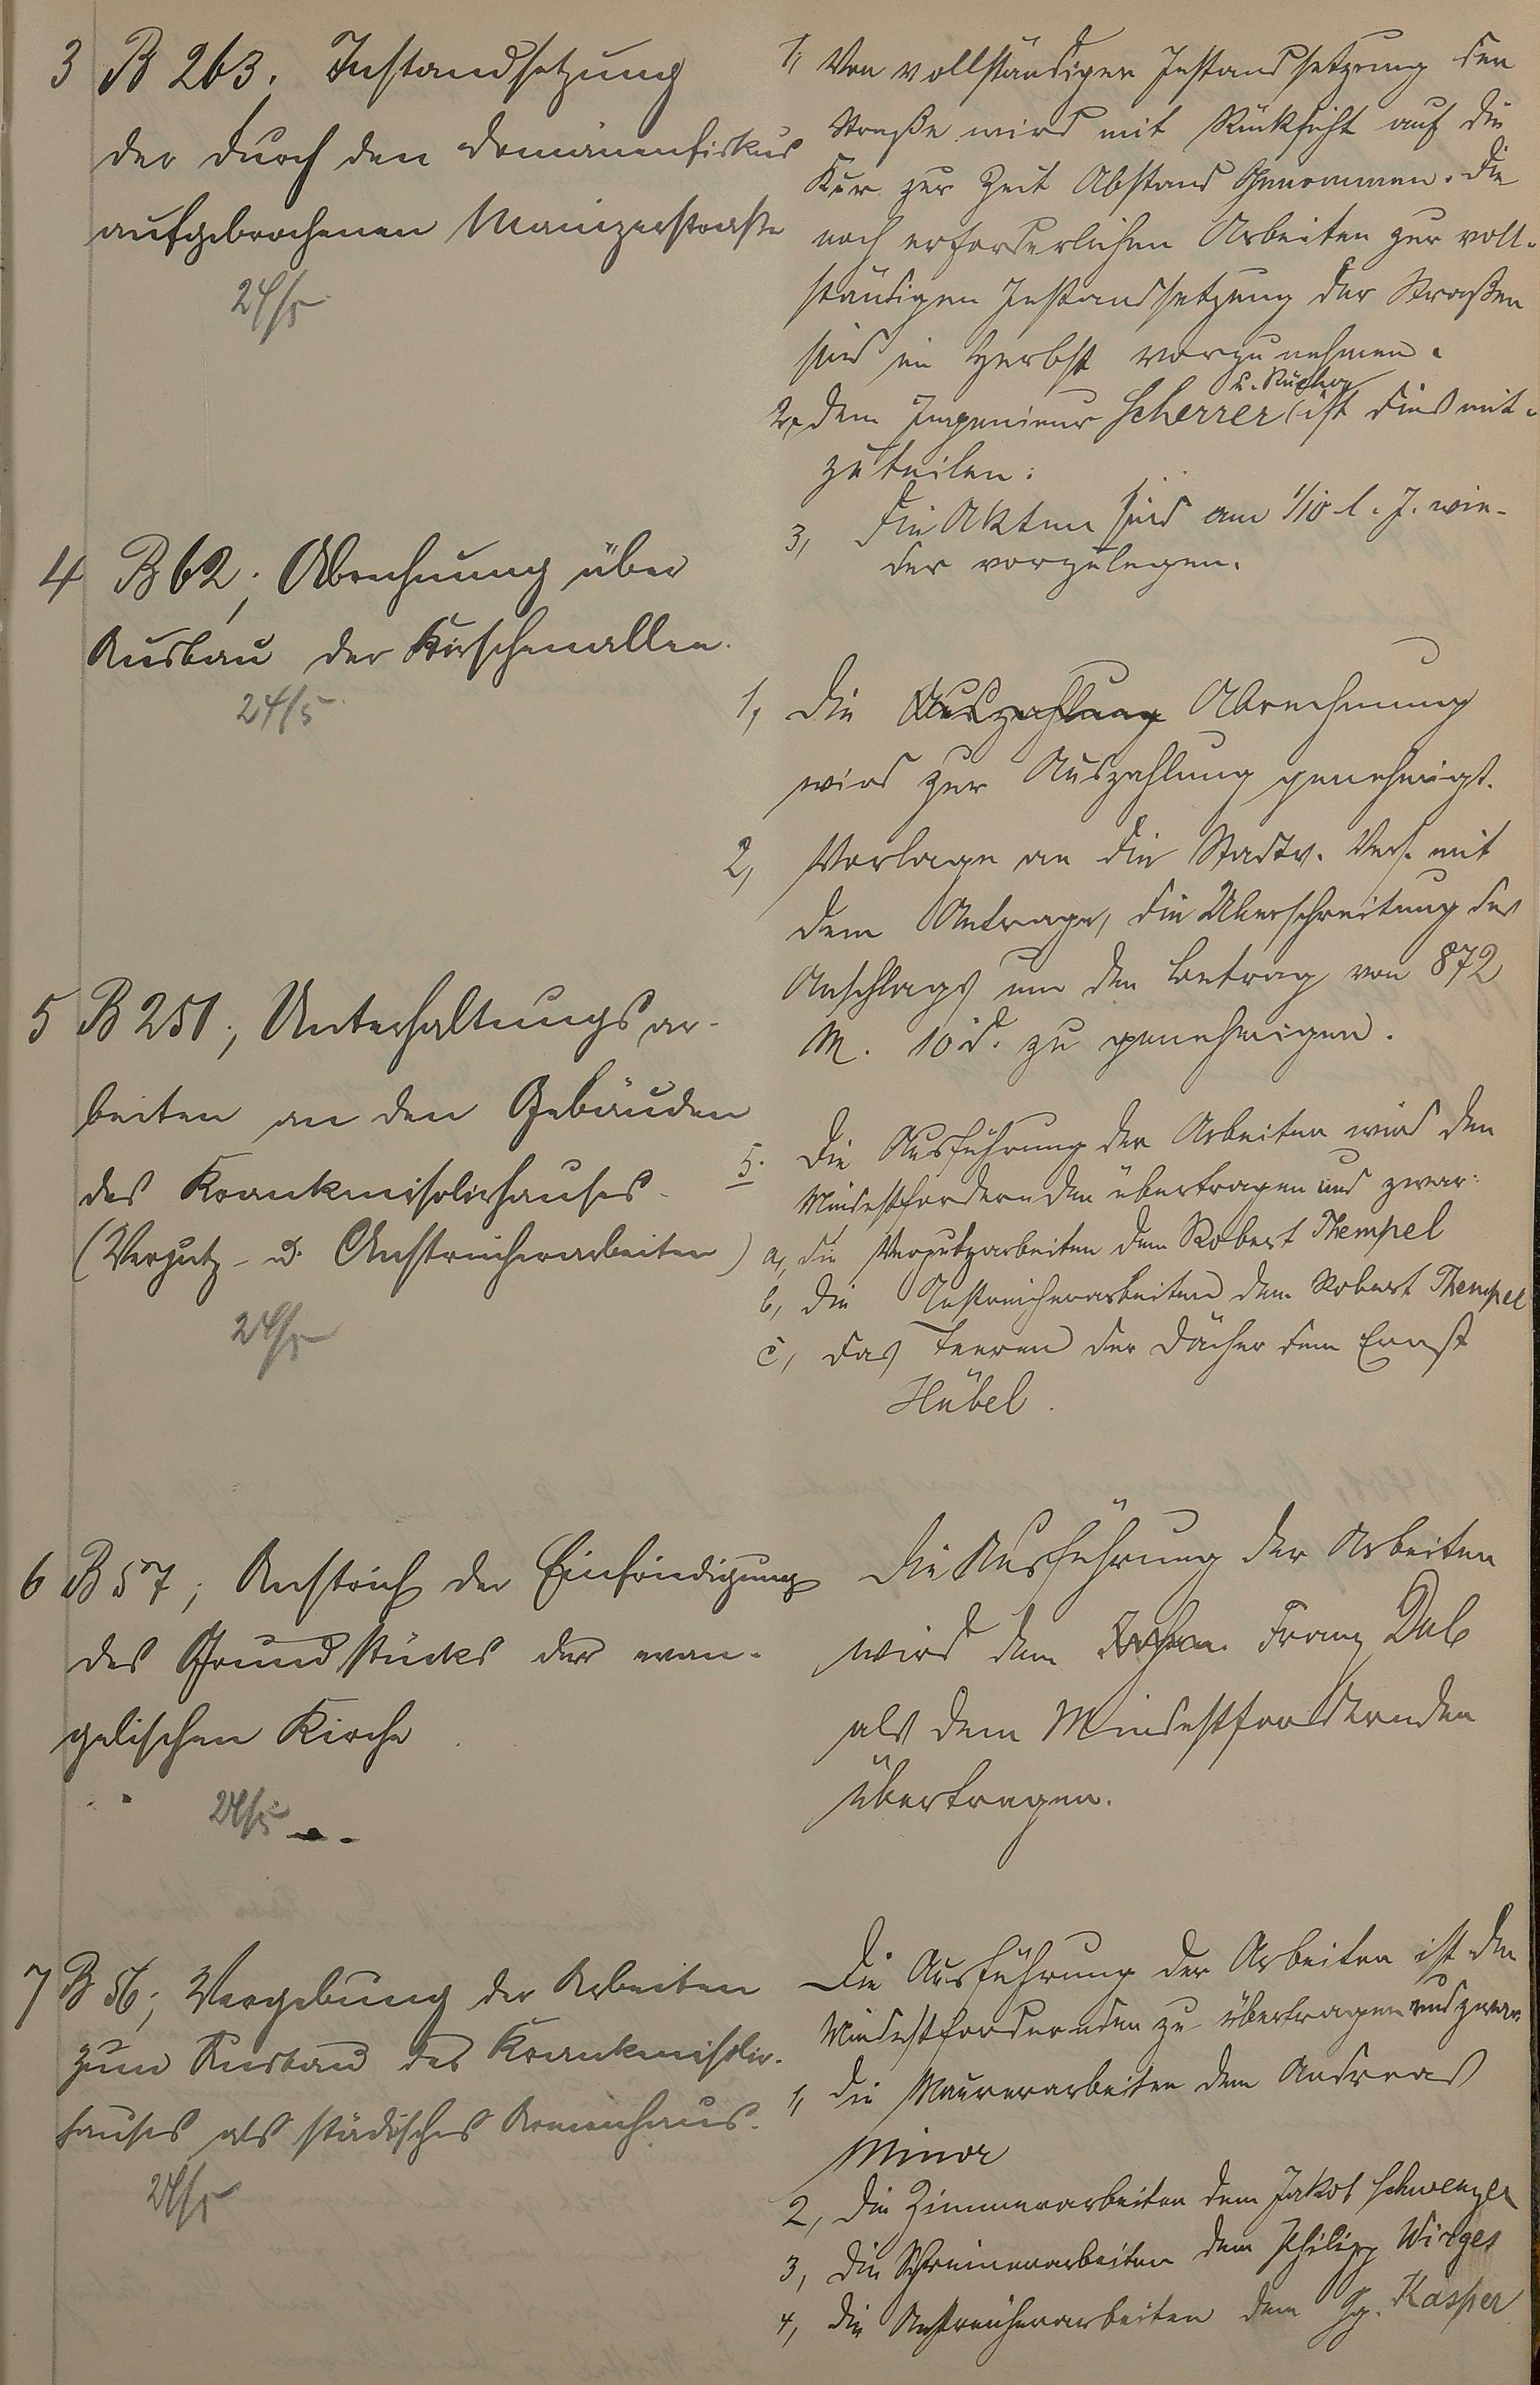 3 B 263. Instandsetzung
der durch den Domänenfiskus
aufgebrochenen Mainzerstraße
24/5
1, Von vollständiger Instandsetzung der
Straße wird mit Rücksicht auf die
Kur zur Zeit Abstand genommen. Die
noch erforderlichen Arbeiten zur voll-
ständigen Instandsetzung der Straßen
sind im Herbst vorzunehmen.
2, dem Ingenieur Scherrer ist dies mit-
zuteilen.
3, Die Akten sind am 1/10 l. J. wie-
der vorzulegen.
4 B 62; Abrechnung über
Ausbau der Kirschenallee.
24/5
1, Die Auszahlung Abrechnung
wird zur Auszahlung genehmigt.
2, Vorlage an die Stadtv. Vers. mit
dem Antrage, die Überschreitung des
Anschlags um den Betrag von 872
M. 10 d. zu genehmigen.
5 B 251; Unterhaltungsar-
beiten an den Gebäuden
des Krankenisolirhauses
(Verputz- u. Anstreicherarbeiten)
24/5
5. Die Ausführung der Arbeiten wird den
Mindestfordernden übertragen und zwar:
a, die Verputzarbeiten dem Robert Thempel
b, die Anstreicherarbeiten dem Robert Thempel
c, das Teeren der Dächer dem Ernst
Hübel.
6 B 57; Anstrich der Einfriedigung
des Grundstücks der evan-
gelischen Kirche
24/5
Die Ausführung der Arbeiten
wird dem Franz Dab
als dem Mindestfordernden
übertragen.
7 B 56; Vergebung der Arbeiten
zum Ausbau des Krankenisolir-
hauses als städisches Armenhaus.
24/5
Die Ausführung der Arbeiten ist den
Mindestfordernden zu übertragen und zwar:
1, die Maurerarbeiten dem Andreas
Minor
2, die Zimmerarbeiten dem Jakob Schwenzer
3, die Schreinerarbeiten dem Philipp Wirges
4, die Anstreicherarbeiten dem Gg. Kasper